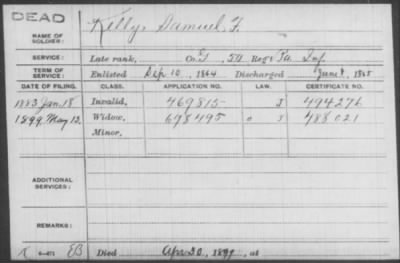 DEAD
NAME OF SOLDIER: Kelly, Samuel, F.
SERVICE: Late rank, Co. I, 50 Reg't Pa. Inf.
TERM OF SERVICE: Enlisted Sep. 10, 1864 Discharged June 1, 1865
DATE OF FILING. CLASS. APPLICATION NO. LAW. CERTIFICATE NO.
1883 Jan. 18 Invalid, 469815 J 494276
1899 May 13. Widow, 698495 o J 488021
Minor,
ADDITIONAL SERVICES:
REMARKS:
K EB Died Apr. 30, 1899, at